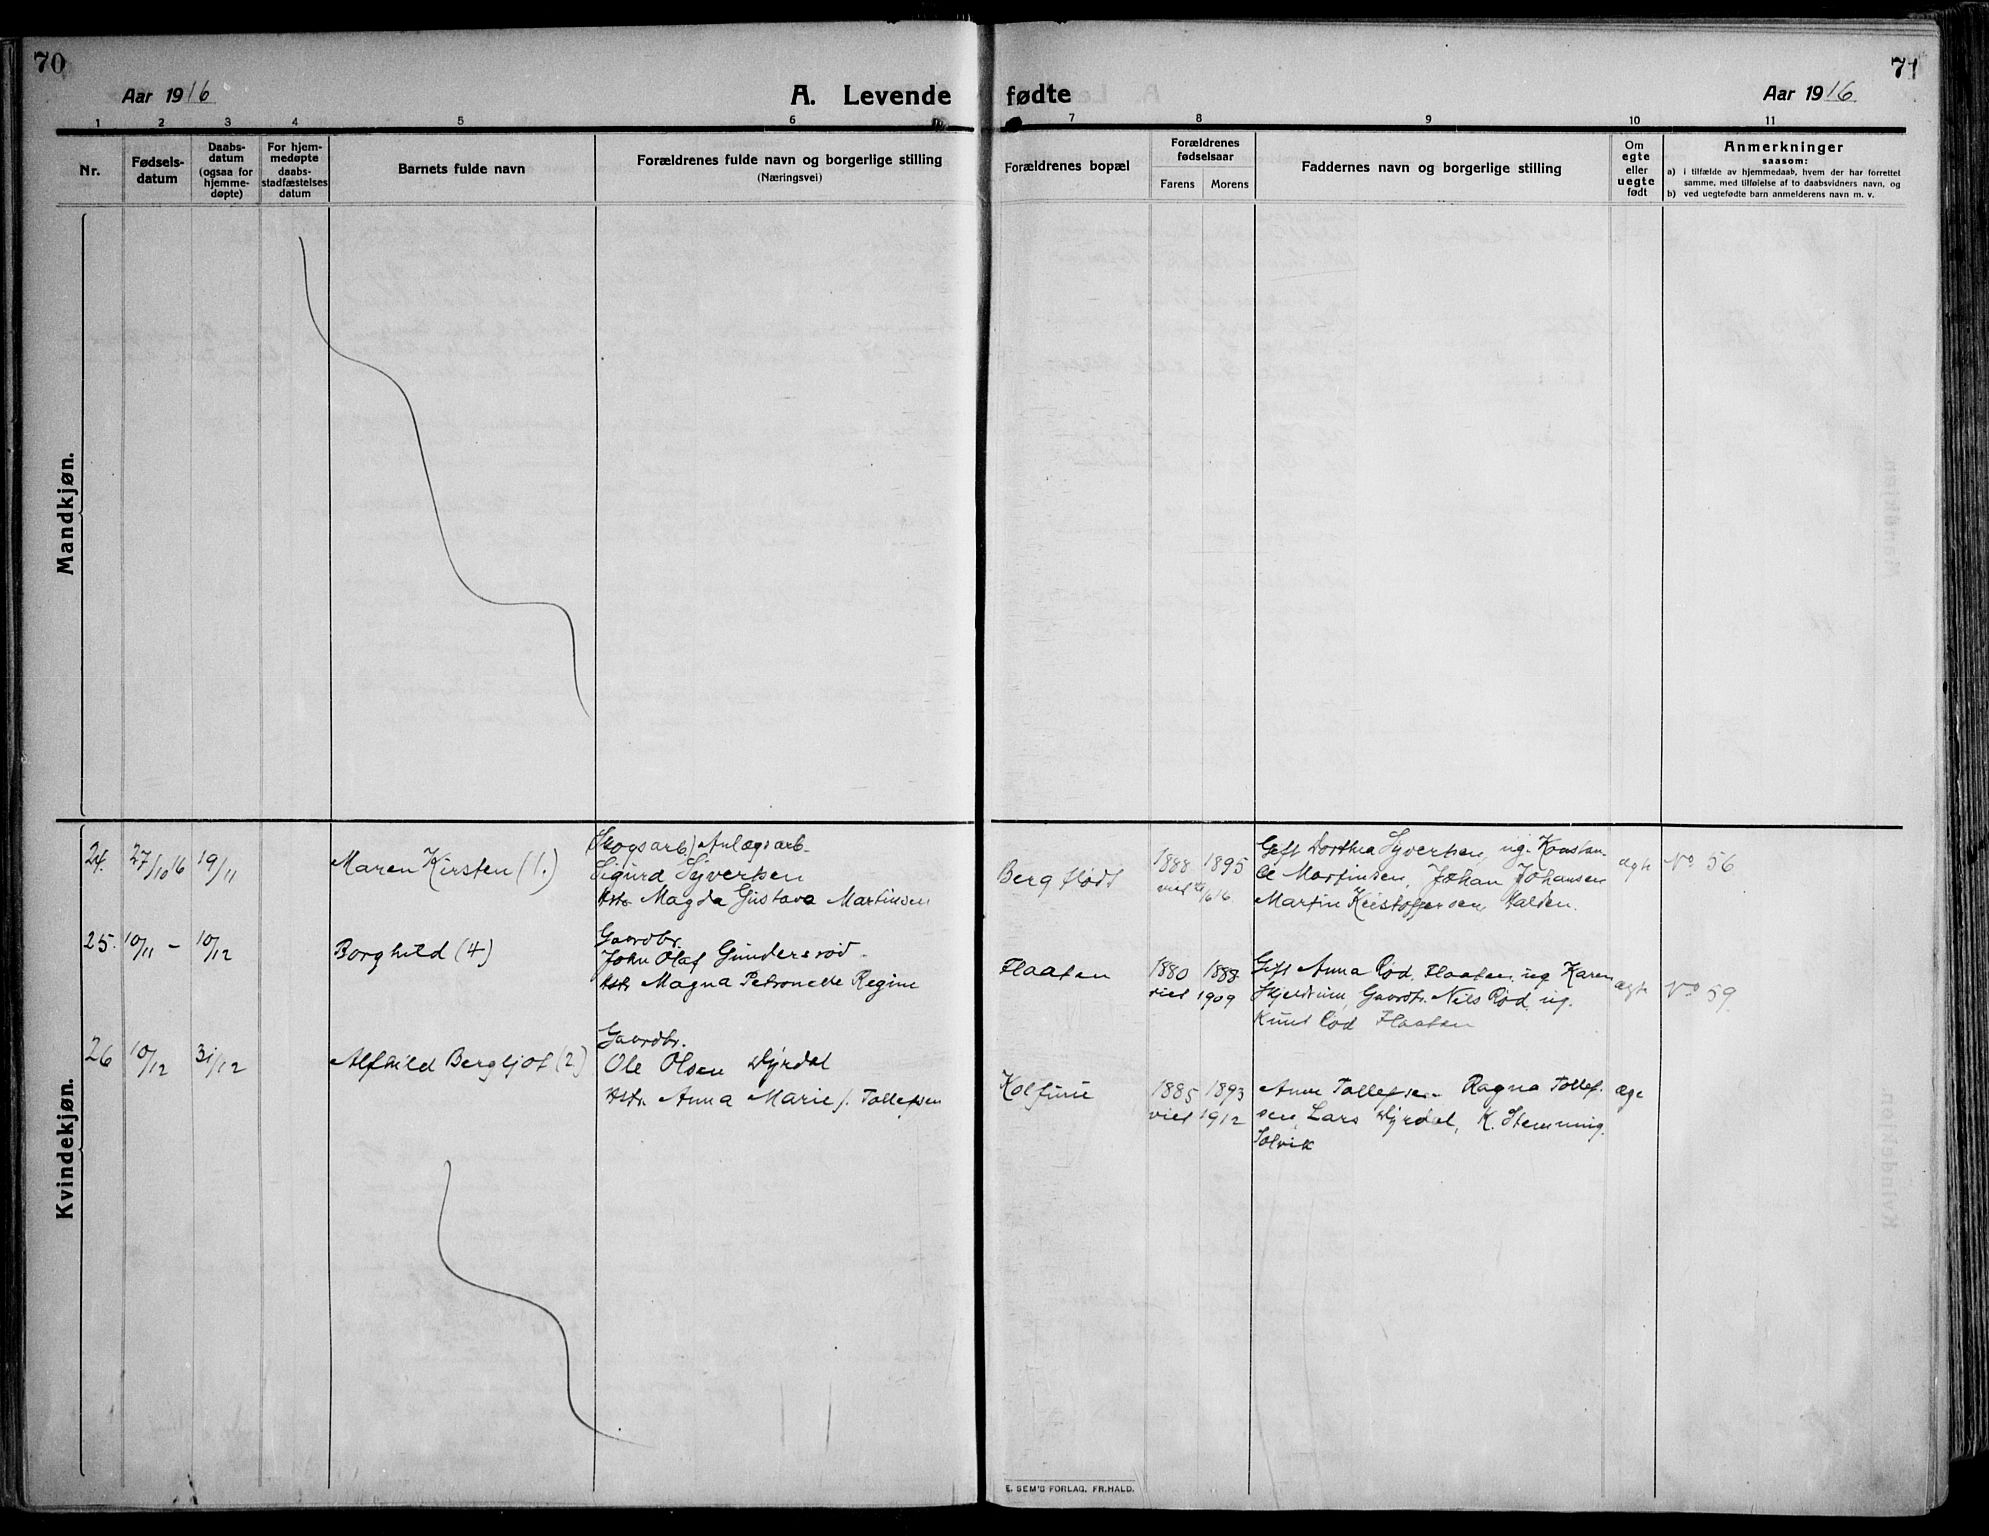 70
Aar 1916
A. Levende
fødte
Aar 1916
71
1 2 3 4 5 6 7 8 9 10 11
Nr.
Fødsels-
datum
Daabs-
datum
(ogsaa for
hjemme-
døpte)
For hjem-
medøpte
daabs-
stadfæstelses
datum
Barnets fulde navn
Forældrenes fulde navn og borgerlige stilling
(Næringsvei)
Forældrenes bopæl
Forældrenes
fødselsaar
Farens Morens
Faddernes navn og borgerlige stilling
Om
egte
eller
uegte
født
Anmerkninger
saasom:
a) i tilfælde av hjemmedaab, hvem der har forrettet
samme, med tilføielse af to daabsvidners navn, og
b) ved uegtefødte barn anmelderens navn m. v.
Mandkjøn.
Kvindekjøn.
24. 27/10 16 19/11 Maren Kirsten (1.)
(Skogsarb) Anlægsarb.
Sigurd Syvertsen
Hstr Magda Gustava Martinsen
Berg flødt
1888 1895
viet 16
Gift Dorthea Syvertsen, ug. Konstan-
ce Martinsen, Johan Johansen
Martin Kristoffersen, Halden.
ægte No 56
25. 10/11 – 10/12 Borghild (4)
Gaardbr.
John Olaf Gundersrød.
Hstr Magna Petronelle Regine
Flaaten
1880 1888
viet 1909
Gift Anna Rød, Flaaten, ug Karen
Skjeldrum, Gaardbr. Nils Rød, ug.
Knut Rød Flaaten
ægte No 59.
26 10/12 31/12 Alfhild Bergljot (2)
Gaardbr.
Ole Olsen Dyrdal
Hstr. Anna Marie f. Tollefsen
Kolfure
1885 1893
viet 1912
Anne Tollefsen Ragna Tollef-
sen, Lars Dyrdal, K. Stemming.
Solvik
æge
E. SEM'S FORLAG. FR.HALD.